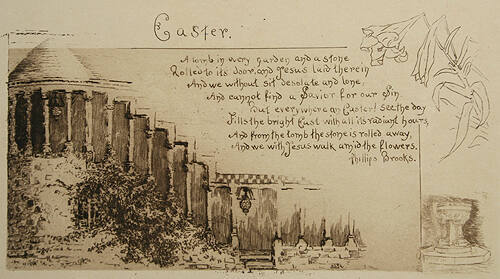 Easter.
A tomb in every garden and a stone
Rolled to its door, and Jesus laid therein
And we without sit desolate and lone,
And cannot find a Savior for our Sin.
But everywhere an Easter! see the day
Fills the bright East with all its radiant hours,
And from the tomb the stone is rolled away,
And we with Jesus walk amid the flowers.
Phillips Brooks.